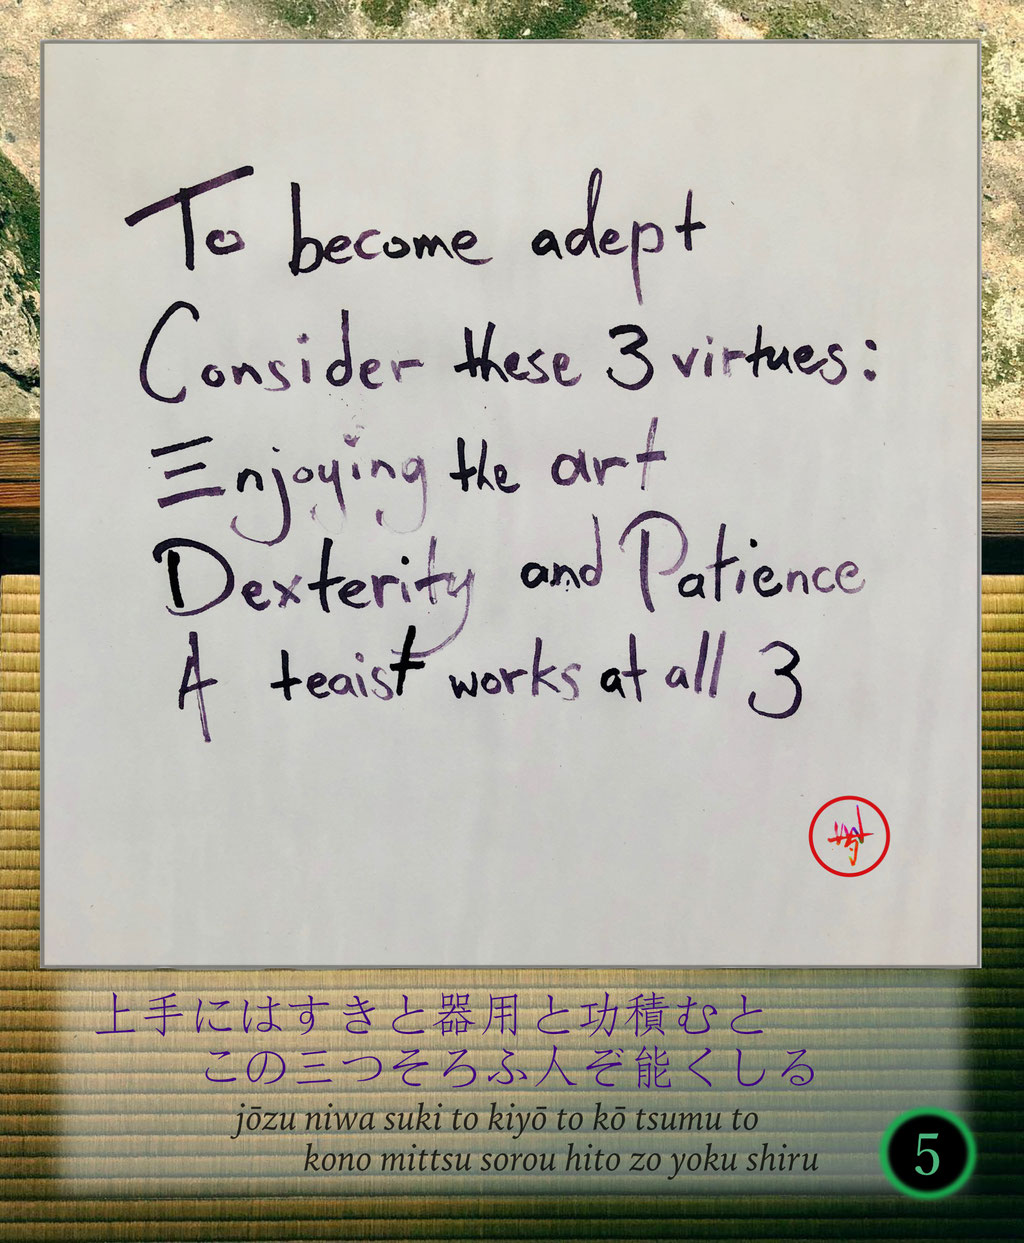 To become adept
Consider these 3 virtues:
Enjoying the art
Dexterity and Patience
A teaist works at all 3
上手にはすきと器用と功積むと
この三つそろふ人ぞ能くしる
jōzu niwa suki to kiyō to kō tsumu to
kono mittsu sorou hito zo yoku shiru
5